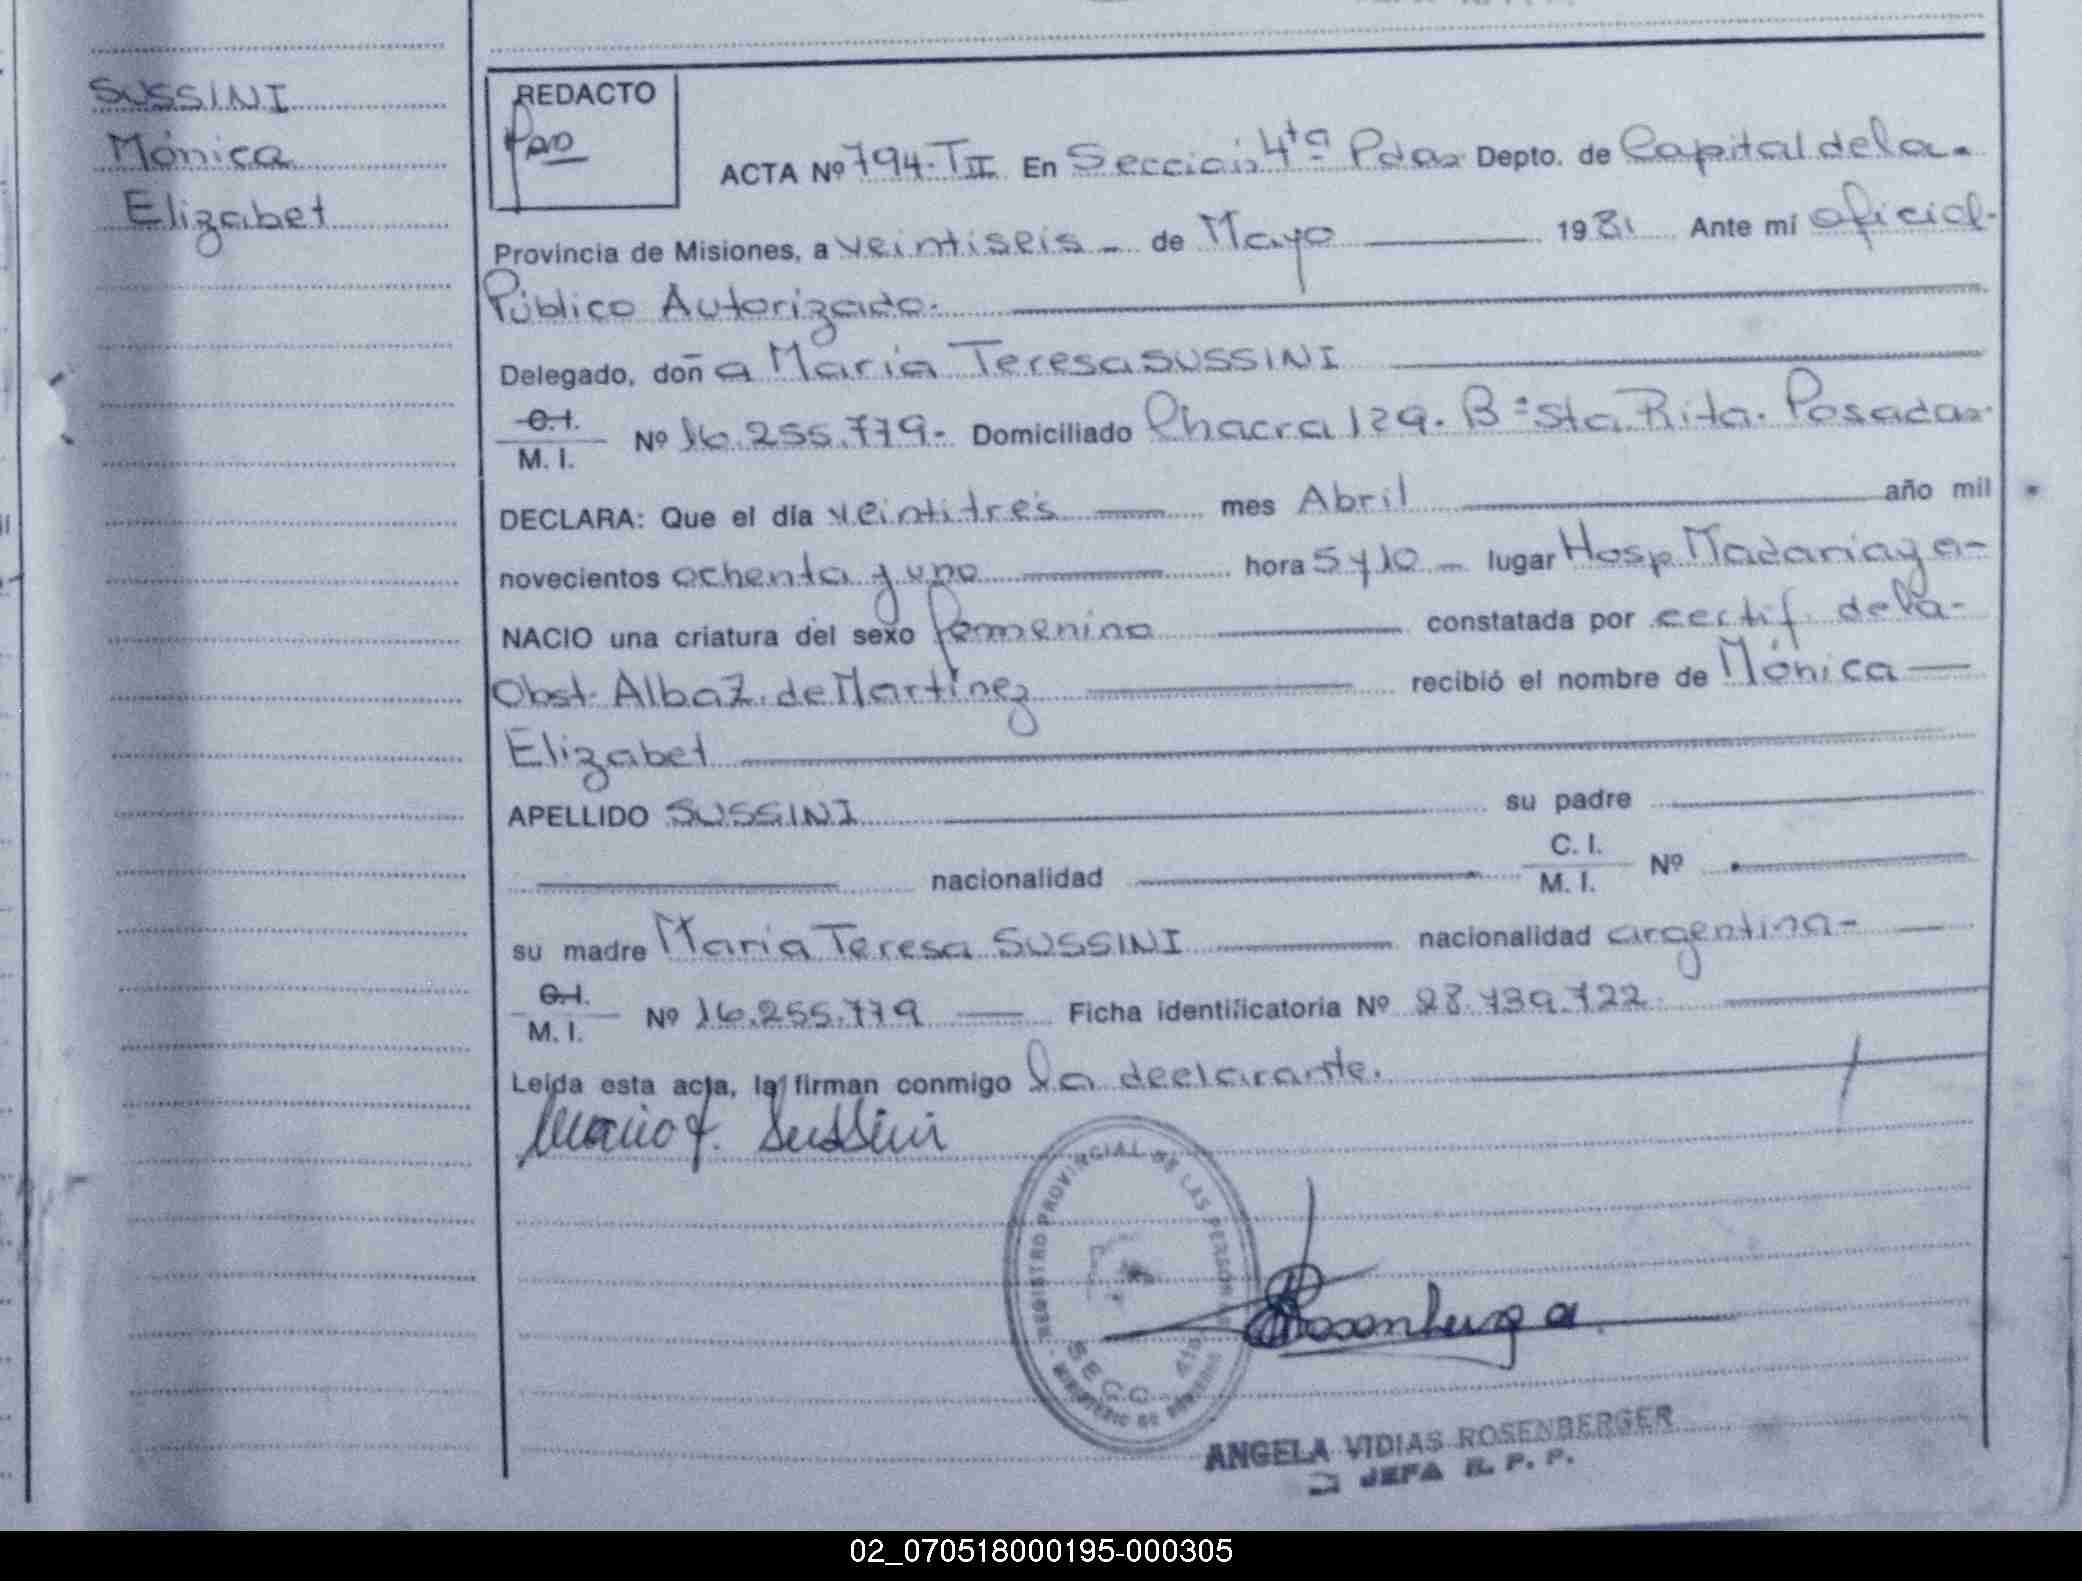 SUSSINI
Mónica
Elizabet
REDACTO
ACTA Nº 794-TII En Sección 4ta Pdas Depto. de Capital de la-
Provincia de Misiones, a veintiseis - de Mayo 1981 Ante mí oficial-
Público Autorizado.
Delegado, doña María Teresa SUSSINI
C.I. M. I. Nº 16.255.779- Domiciliado Chacra 129. Bº Sta Rita. Posadas
DECLARA: Que el día veintitrés mes Abril año mil
novecientos ochenta y uno hora 5 y 10 - lugar Hosp. Madariaga-
NACIO una criatura del sexo femenino constatada por certif. de la-
Obst. Alba Z. de Martínez recibió el nombre de Mónica
Elizabet
APELLIDO SUSSINI su padre
nacionalidad C. I. M. I. Nº
su madre María Teresa SUSSINI nacionalidad argentina-
C.I. M. I. Nº 16.255.779 Ficha identificatoria Nº 28.739.722
Leída esta acta, la firman conmigo la declarante.
Maria T. Sussini
REGISTRO PROVINCIAL DE LAS PERSONAS
SECC. 4ta
MINISTERIO DE GOBIERNO
Rosenberger
ANGELA VIDIAS ROSENBERGER
JEFA R. P. P.
02_070518000195-000305